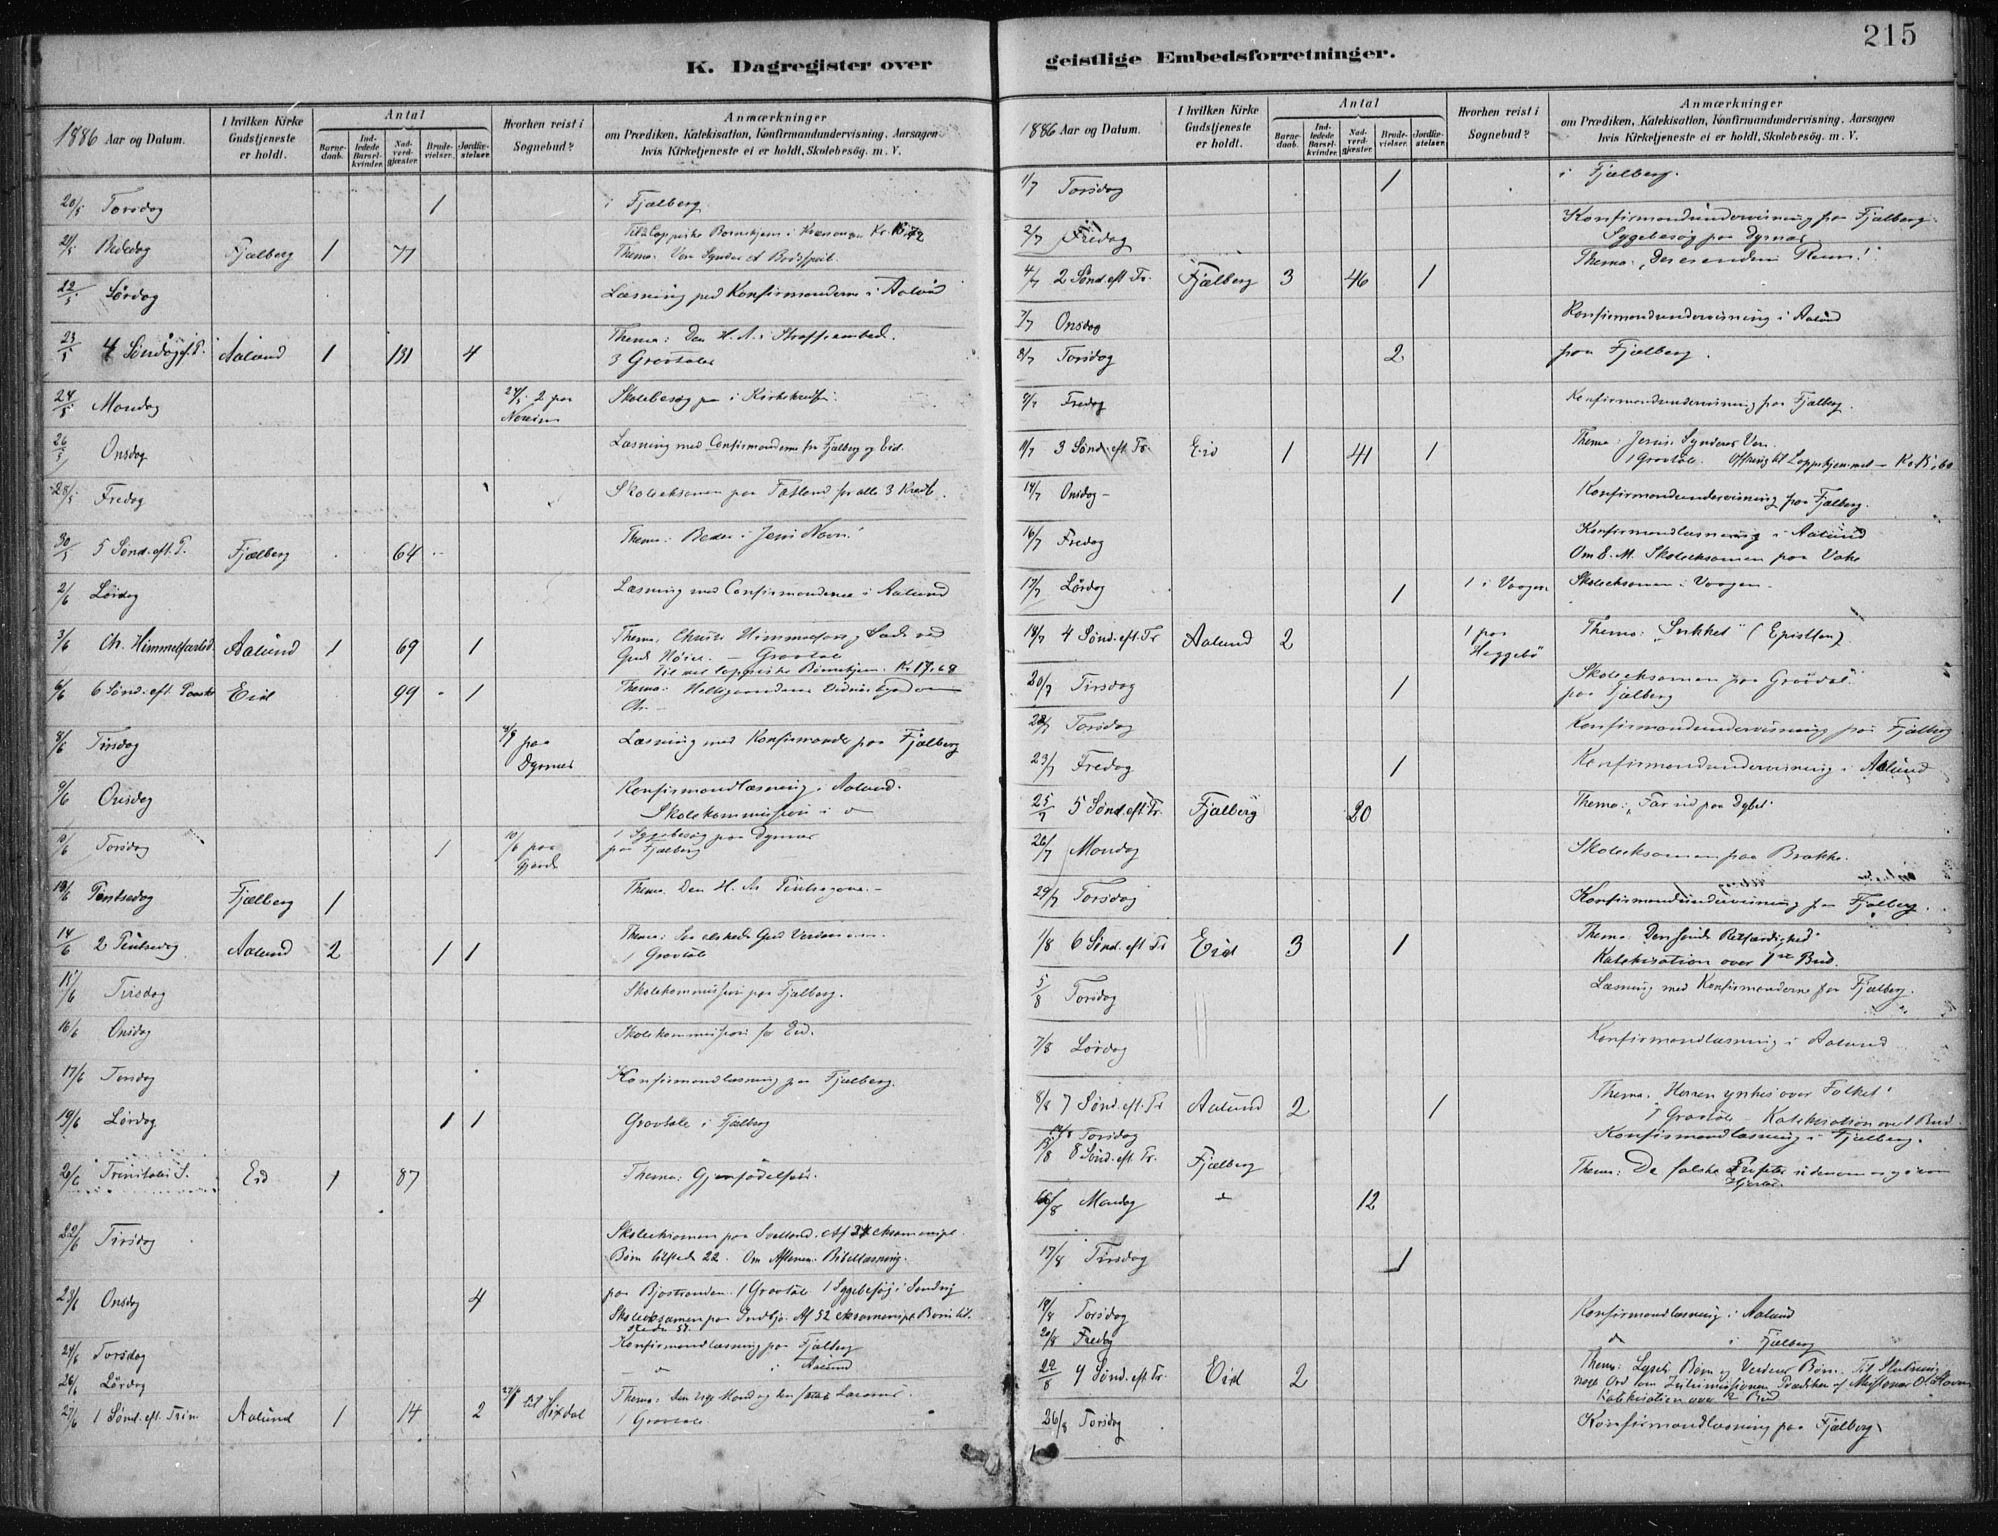 215
K. Dagregister over geistlige Embedsforretninger.
1886 Aar og Datum.
I hvilken Kirke Gudstjeneste er holdt.
Antal
Barnedaab.
Indledede Barselkvinder.
Nadverdgjæster.
Brudevielser.
Jordfæstelser.
Hvorhen reist i Sognebud?
Anmærkninger
om Prædiken, Katekisation, Konfirmandundervisning. Aarsagen
hvis Kirketjeneste ei er holdt, Skolebesög. m. V.
20/5 Torsdag 1 i Fjælberg
21/5 Bededag Fjælberg 1 77
Thema: Vor Synder et
22/5 Lørdag Læsning med Konfirmanderne i Aalund
23/5 4 Søndag e. P. Aalund 1 131 4 Thema: Den H. A.s Straffeembed.
3 Gravtaler
24/5 Mandag 24/5 2 paa Skolebesøg i Kirkekredsen
26/5 Onsdag Læsning med Confirmanderne fra Fjælberg og Eid.
28/5 Fredag Skoleeksamen paa for alle 3 Kredse.
30/5 5 Sønd. eft. P. Fjælberg 64 Thema: Beder i Jesu Navn!
2/6 Lørdag Læsning med Confirmanderne i Aalund
3/6 Ch. Himmelfartsd. Aalund 1 69 1 Thema: Christi Himmelfart og Sæde ved
Guds Høire. – Gravtale
Kr. 17.68
6/6 6 Sønd. eft. Paaske Eid 99 1 Thema: Helligaandens Vidnesbyrd om
Ch.
8/6 Tirsdag 8/6 paa Dyrnes Læsning med Konfirmander paa Fjælberg
9/6 Onsdag Konfirmandlæsning i Aalund.
Skolekommission i
10/6 Torsdag 1 10/6 paa 1 Sygebesøg paa Dyrnes
paa Fjælberg
13/6 Pintsedag Fjælberg 1 Thema: Den H. As Pintsegave.
14/6 2 Pintsedag Aalund 2 1 1 Thema: Saa elskede Gud Verden o.s.v.
1 Gravtale
15/6 Tirsdag Skolekommission paa Fjælberg.
16/6 Onsdag Skolekommission for Eid.
17/6 Torsdag Konfirmandlæsning paa Fjælberg.
19/6 Lørdag 1 1 Gravtale i Fjælberg
20/6 Trinitatis S. Eid 1 87 Thema: Gjenfødelsen.
22/6 Tirsdag Skoleeksamen paa Svelland. Af 24 eksamenspl.
Børn tilstede 22. Om Aftenen Bibellæsning.
23/6 Onsdag 4 paa 1 Gravtale 1 Sygebesøg i
Skoleeksamen paa Af 52 eksamenspl. Børn til
stede
24/6 Torsdag Konfirmandlæsning paa Fjælberg
26/6 Lørdag i Aalund
27/6 1 Sønd. eft. Trin Aalund 1 14 2 27/6 til Thema: den rige Mand og den fattige Lazarus.
1 Gravtale
1886 Aar og Datum.
I hvilken Kirke Gudstjeneste er holdt.
Antal
Barnedaab.
Indledede Barselkvinder.
Nadverdgjæster.
Brudevielser.
Jordfæstelser.
Hvorhen reist i Sognebud?
Anmærkninger
om Prædiken, Katekisation, Konfirmandundervisning. Aarsagen
hvis Kirketjeneste ei er holdt, Skolebesög. m. V.
1/7 Torsdag 1 i Fjælberg.
2/7 Fredag Konfirmandundervisning paa Fjælberg.
Sygebesøg paa Dyrnes
4/7 2 Sønd. eft. Tr. Fjælberg 3 46 1 Thema: „Der er endnu Rum!"
7/7 Onsdag Konfirmandundervisning i Aalund
8/7 Torsdag 2 paa Fjælberg.
9/7 Fredag Konfirmandundervisning paa Fjælberg.
11/7 3 Sønd. eft. Tr. Eid 1 41 1 Thema: Jesus Synderes Ven.
1 Gravtale.
14/7 Onsdag – Konfirmandundervisning paa Fjælberg.
16/7 Fredag Konfirmandlæsning i Aalund
Om E. M. Skoleeksamen paa
17/7 Lørdag 1 1 i Vaagen Skoleeksamen i Vaagen
18/7 4 Sønd. eft. Tr Aalund 2 1 paa Heggebø Thema: „Sukket" (Epistlen)
20/7 Tirsdag 1 Skoleeksamen paa
paa Fjælberg
22/7 Torsdag Konfirmandundervisning paa Fjælberg
23/7 Fredag 1 Konfirmandundervisning i Aalund
25/7 5 Sønd. eft. Tr. Fjælberg 20 Thema: „Far ud paa Dybet
26/7 Mandag Skoleeksamen paa Brække.
29/7 Torsdag Konfirmandundervisning paa Fjælberg.
1/8 6 Sønd. eft. Tr Eid 3 1 Thema: Den sande Retfærdighed
Katekisation over 1ste Bud.
5/8 Torsdag Læsning med Konfirmanderne paa Fjælberg.
7/8 Lørdag Konfirmandlæsning i Aalund
8/8 7 Sønd. eft. Tr Aalund 2 1 Thema: Herren ynkes over Folket.
1 Gravtale Katekisation over 1 Bud.
12/8 Torsdag Konfirmandlæsning i Fjælberg.
15/8 8 Sønd. eft. Tr. Fjælberg Thema: De falske Profeter udenom og i vore
Hjerter.
16/8 Mandag 12
17/8 Tirsdag 1
19/8 Torsdag Konfirmandlæsning i Aalund
20/8 Fredag i Fjælberg
22/8 9 Sønd. eft. Tr. Eid 2 Thema: Lysets Børn og Verdens Børn. Til Slutning
nogle Ord om Prædiken af
Katekisation over 2 Bud
26/8 Torsdag Konfirmandlæsning paa Fjælberg